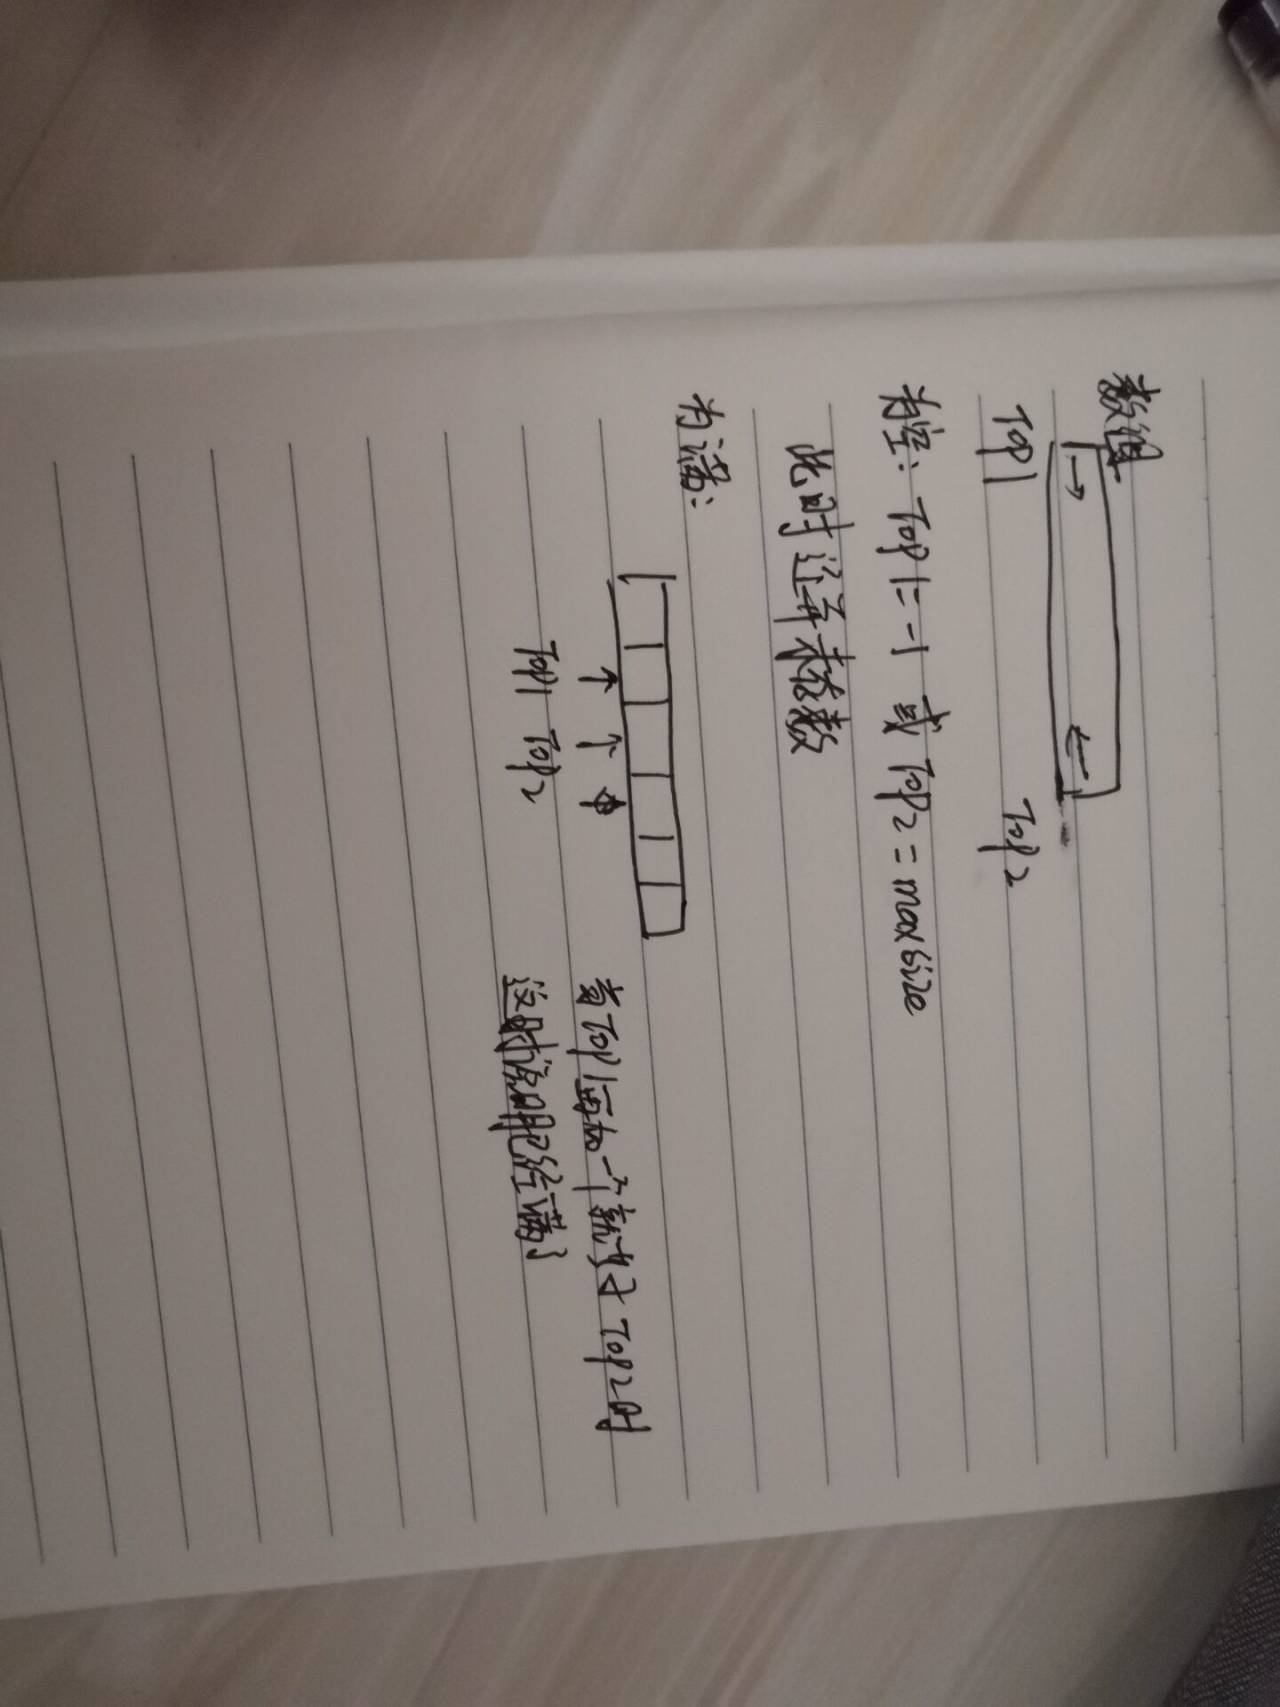 数组
Top1 Top2
为空: Top1=-1 或 Top2=maxsize
此时还弃来存数
为满:
Top1 Top2
当Top1再加一个就等于Top2时
这时说明已经满了